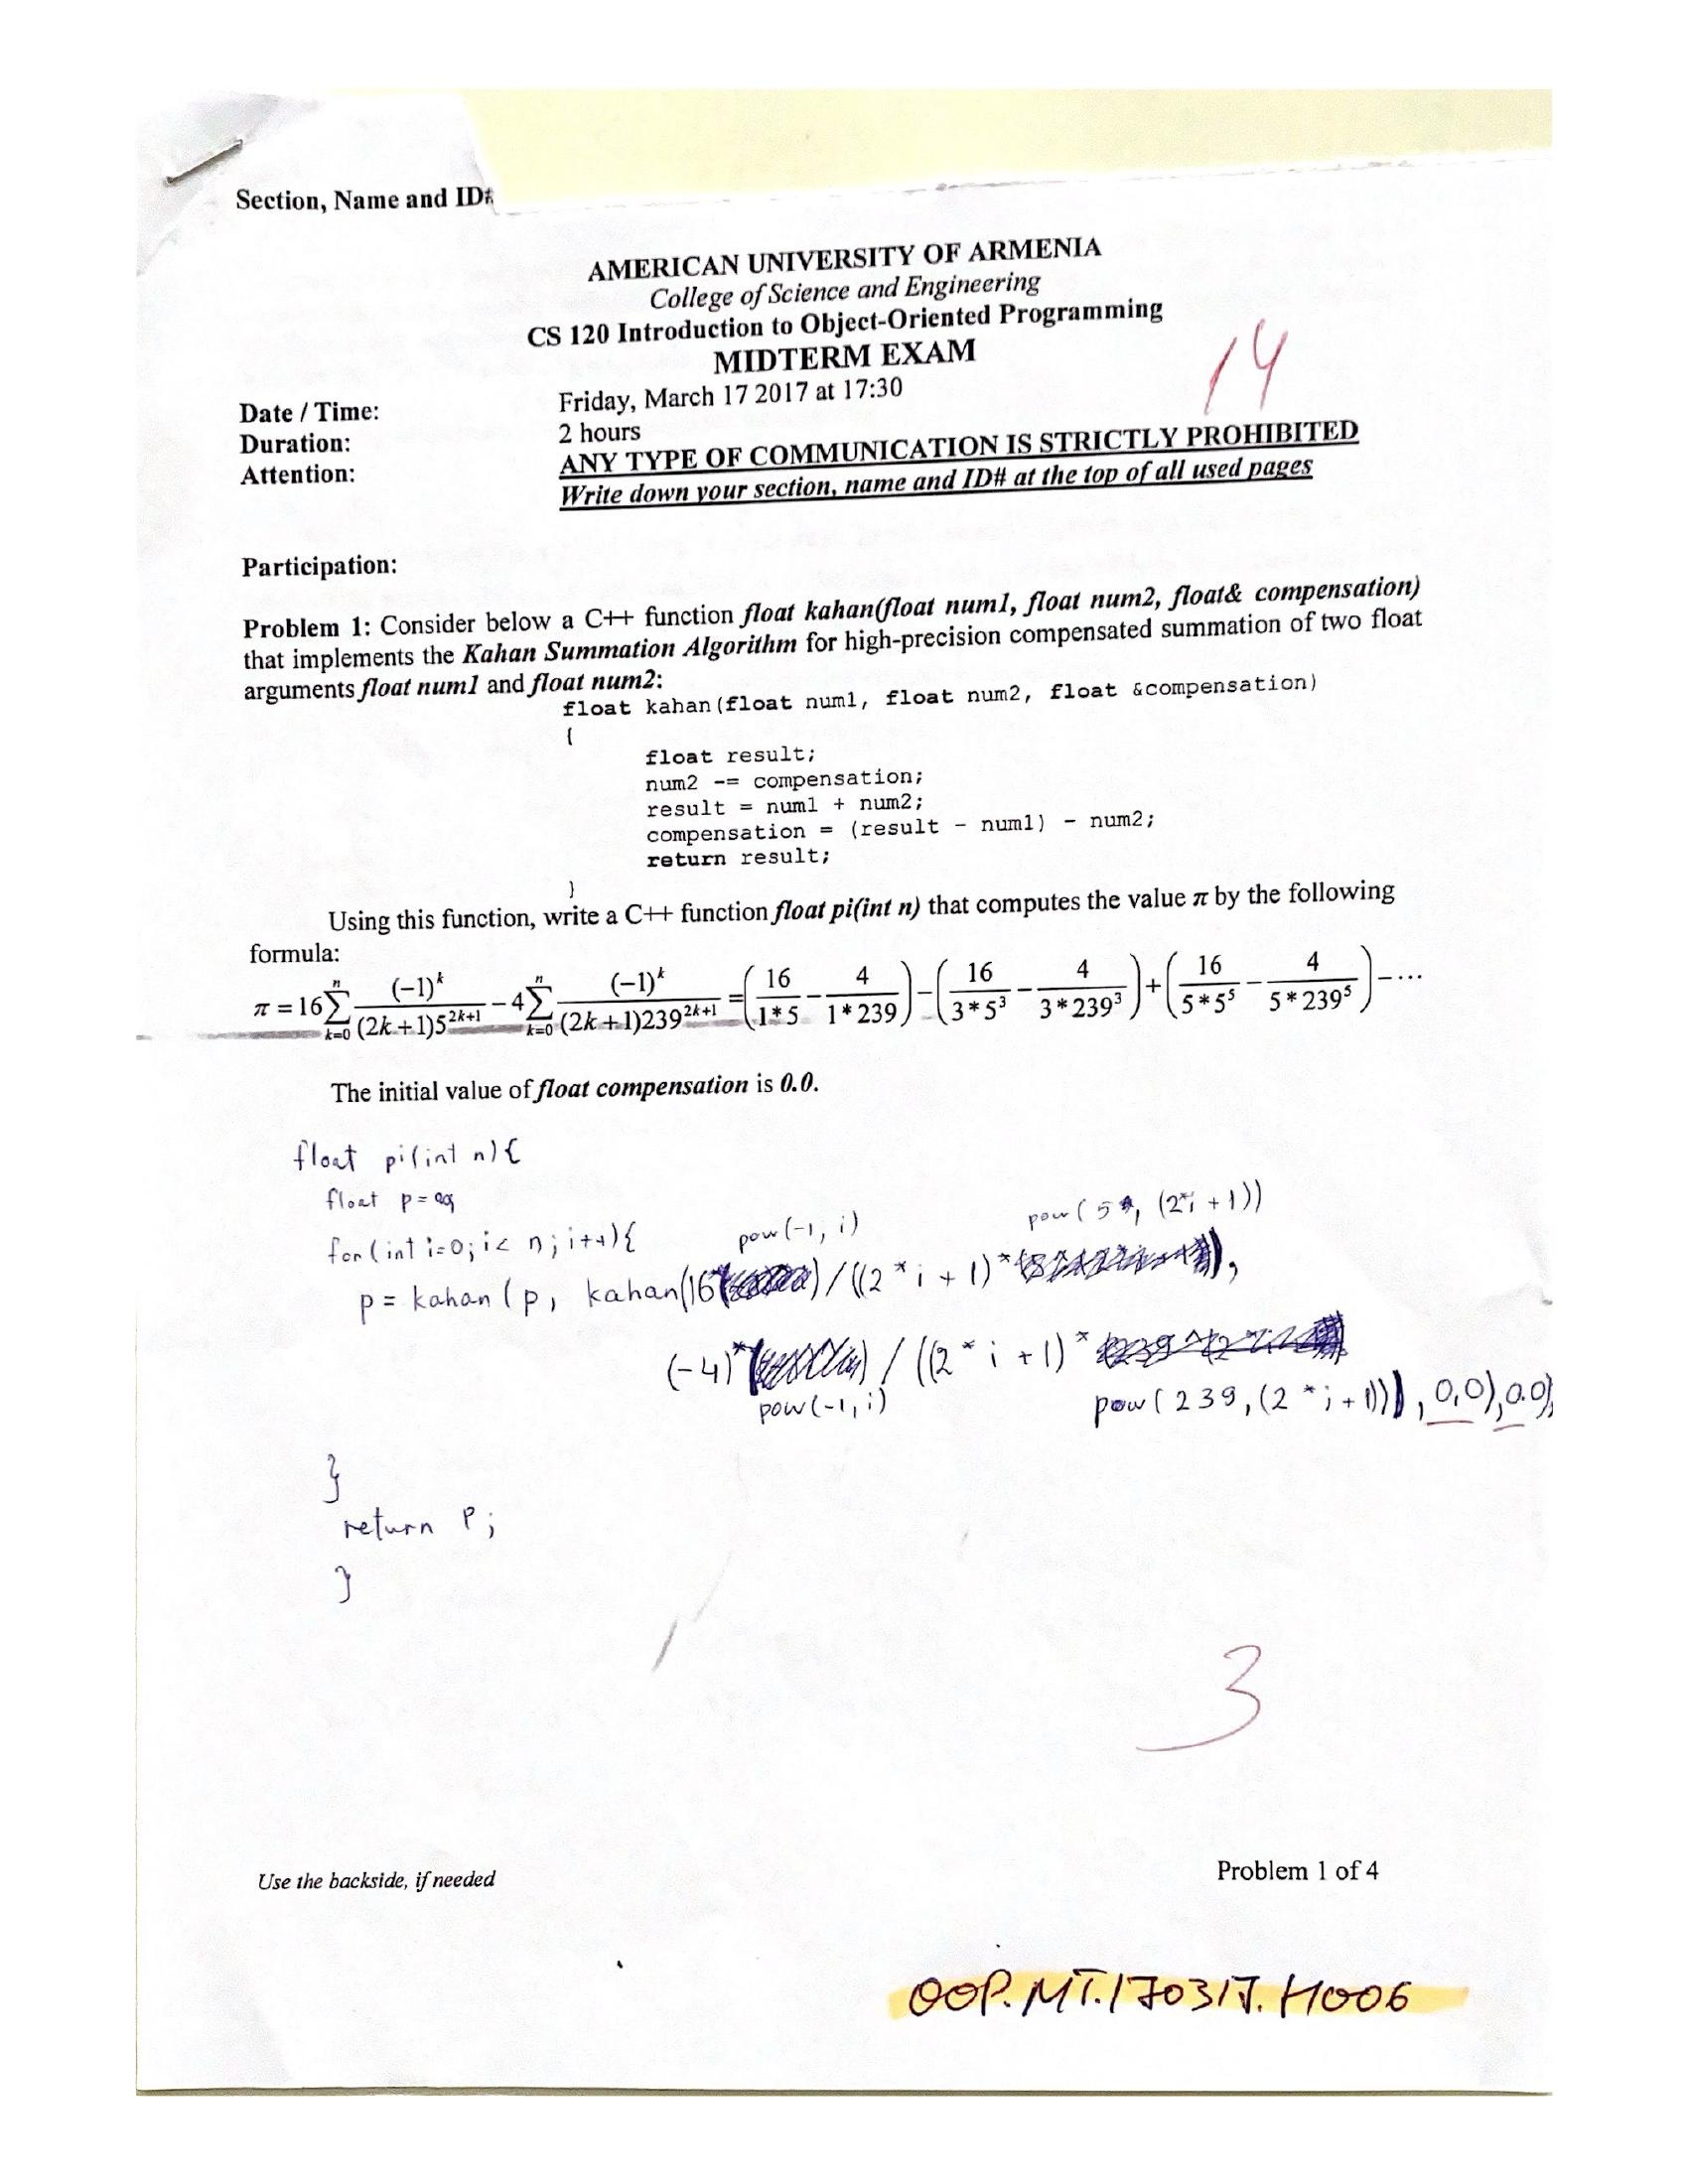 Section, Name and ID#
AMERICAN UNIVERSITY OF ARMENIA
College of Science and Engineering
CS 120 Introduction to Object-Oriented Programming
MIDTERM EXAM
14
Date / Time: Friday, March 17 2017 at 17:30
Duration: 2 hours
Attention: ANY TYPE OF COMMUNICATION IS STRICTLY PROHIBITED
Write down your section, name and ID# at the top of all used pages
Participation:
Problem 1: Consider below a C++ function float kahan(float num1, float num2, float& compensation)
that implements the Kahan Summation Algorithm for high-precision compensated summation of two float
arguments float num1 and float num2:
float kahan(float num1, float num2, float &compensation)
{
float result;
num2 -= compensation;
result = num1 + num2;
compensation = (result - num1) - num2;
return result;
}
Using this function, write a C++ function float pi(int n) that computes the value π by the following
formula:
π = 16 ∑_{k=0}^{n} (-1)^k / ((2k+1)5^{2k+1}) - 4 ∑_{k=0}^{n} (-1)^k / ((2k+1)239^{2k+1}) = (16/(1*5) - 4/(1*239)) - (16/(3*5^3) - 4/(3*239^3)) + (16/(5*5^5) - 4/(5*239^5)) - ...
The initial value of float compensation is 0.0.
float pi(int n){
float p =
for(int i=0; i< n; i++){
pow(-1, i) pow( 5, (2*i +1))
p = kahan (p, kahan(16* ) / ((2*i+1)* ),
(-4)* ) / ((2*i+1)*
pow(-1, i) pow( 239, (2*i+1))), 0.0), 0.0)
}
return p;
}
3
Use the backside, if needed
Problem 1 of 4
OOP.MT.170317.H006